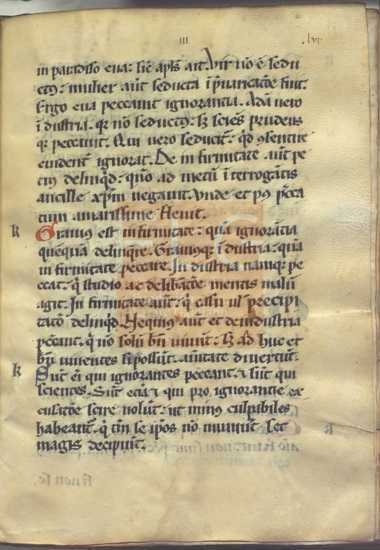 III
lvi
in paradiso eua: sic apls ait. Vir nō ē sedu
ctus: mulier aut seducta ī p̄uaricatōe fuit.
Ergo eua peccauit ignorancia. Adā uero
ī dustria. qr nō seductus: sz sciēs prudēsqz
peccauit. Qui uero seducit: qd ɔsentiē
euident ignorat. De in firmitate. aut pe
trus deliqd: qn̄ ad metū ī terrogātis
ancille xp̄m negauit. Vnde et ps pcca
tum amarissime fleuit.
k
Grauius est in firmitate: qua ignorācia
quēquā delinqre. Grauiusqz ī dustria: quā
in firmitate peccare. In dustria namqz pe
ccat: q studio ac delibatōe mentis malū
agit. In firmitate aut: q casu ul precipi
tatōe delinqd. Nequius aut et de industria
peccant: q nō solū bn̄ uiuūt: sz ad huc et
bn̄ uiuentes si possūt. a ūitate diuertūt.
k
Sūt ei qui ignorantes peccant: sūt qui
scientes. Sūt eciā qui pro ignorantie ex
cusatōe scire nolūt: ut minus culpabiles
habeant. q tn̄ se ipos nō muniūt set
magis decipiūt.